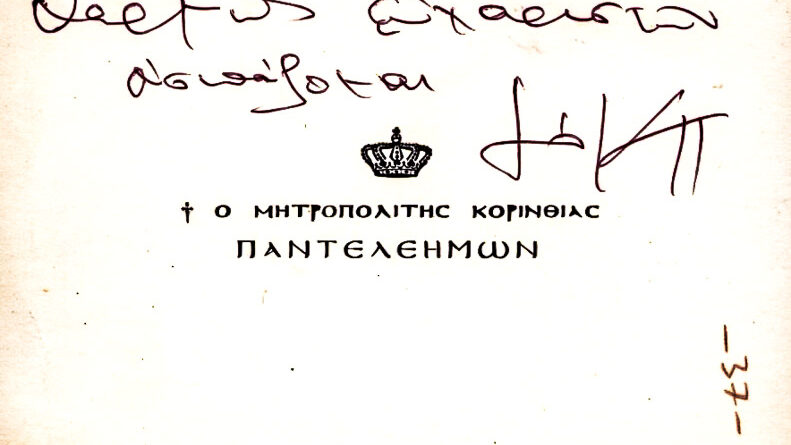 Θερμῶς εὐχαριστῶν
ἀσπάζομαι
† Ο ΜΗΤΡΟΠΟΛΙΤΗΣ ΚΟΡΙΝΘΙΑΣ
ΠΑΝΤΕΛΕΗΜΩΝ
-37-